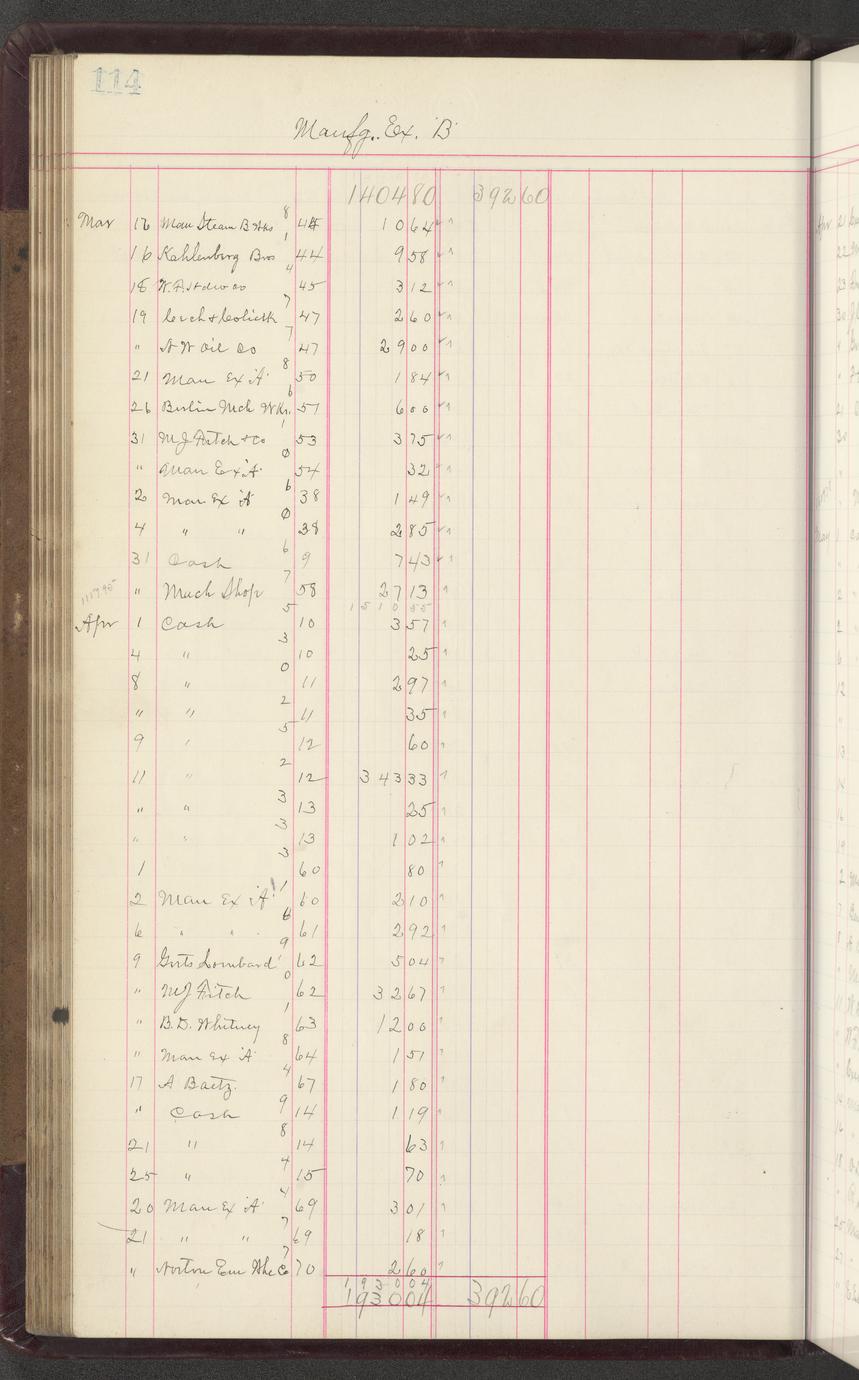 114
Manfg. Ex. "B"
140480 39260
Mar 12 Man Steam B Wks 8 44 10 64
16 Kahlenberg Bros 1 44 9 58
18 4 45 3 12
19 7 47 2 60
" N W Oil Co 7 47 29 00
21 Man Ex "A" 8 50 1 84
26 Berlin Mch Wks. 6 51 6 00
31 M J Fitch & Co 1 53 3 75
" Man Ex "A" 0 54 32
2 Man Ex "A" 6 38 1 49
4 " " 0 38 2 85
31 Cash 6 9 7 43
" Mach Shop 7 58 27 13
1510 55
Apr 1 Cash 5 10 3 57
4 " 3 10 25
8 " 0 11 2 97
" " 2 11 35
9 " 5 12 60
11 " 2 12 343 33
" " 3 13 25
" " 3 13 1 02
1 3 60 80
2 Man Ex "A" 1 60 2 10
6 " " 6 61 2 92
9 Gerts Lombard 9 62 5 04
" M J Fitch 0 62 32 67
" B. D. Whitney 1 63 12 00
" Man Ex "A" 8 64 1 51
17 A Baetz. 4 67 1 80
" Cash 9 14 1 19
21 " 8 14 63
25 " 4 15 70
20 Man Ex "A" 4 69 3 01
21 " " 7 69 18
" Norton Em Whe Co 7 70 2 60
1930 04
193004 39260